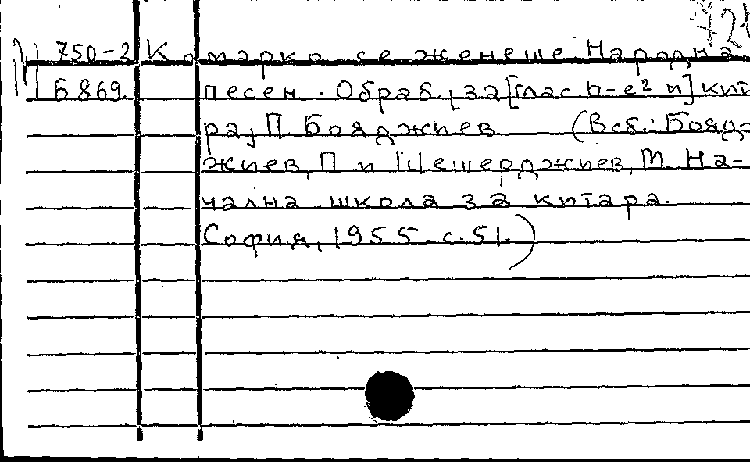 721
М 750-2 Комарко се женеше Народна
Б869. песен. Обраб. за [глас h-e² и] кита
ра, П. Бояджиев (Всб.: Бояд-
жиев, П и Цешерджиев, М. На-
чална школа за китара.
София, 1955 с. 51.)